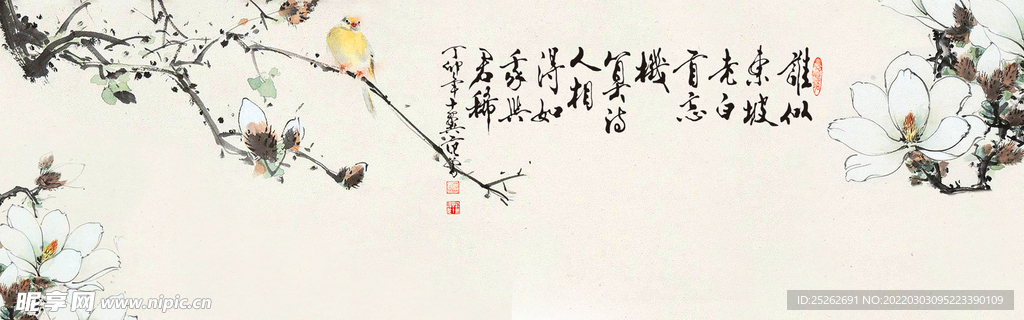 誰似
東坡
老白
首忘
機
算詩
人相
得如
我與
君稀
丁卯年十
昵享网 www.nipic.cn
ID:25262691 NO:20220303095223390109